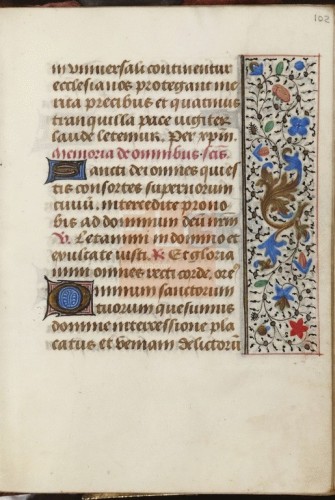 102
in universali continentur
ecclesia nos protegant me
rita precibus et quatinus
tranquilla pace iugiter
laude letemur. Per xpm.
Memoria de omnibus scis.
Sancti dei omnes qui es
tis consortes supernorum
civiu. intercedite pro no
bis ad dominum deu nrm
V. Letamini in domino et
exultate iusti. R. Et gloria
mini omnes recti corde. ore
Omnium sanctorum
tuorum quesumus
domine intercessione pla
catus et veniam delictoru